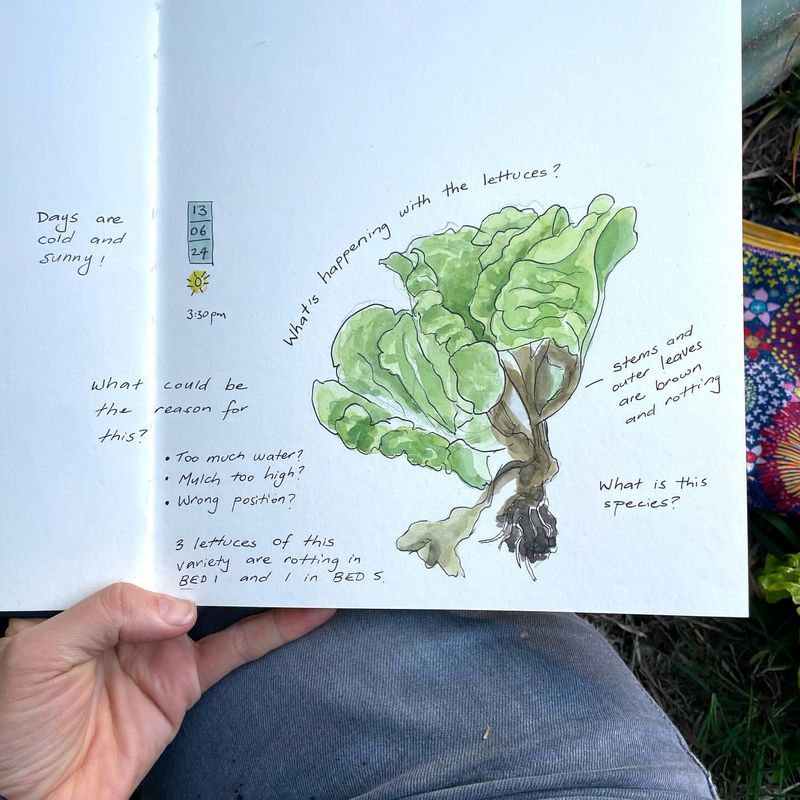 Days are
cold and
sunny!
13
06
24
3:30pm
What's happening with the lettuces?
stems and
outer leaves
are brown
and rotting
What could be
the reason for
this?
• Too much water?
• Mulch too high?
• Wrong position?
What is this
species?
3 lettuces of this
variety are rotting in
BED 1 and 1 in BED 5.